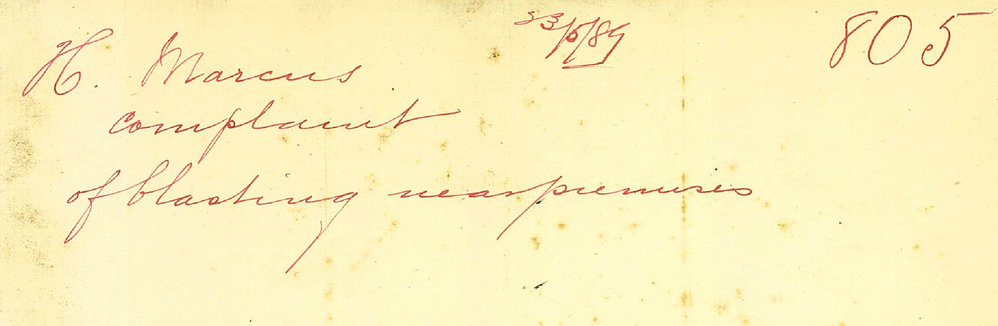 23/5/89
805
H. Marcus
complaint
of blasting near premises